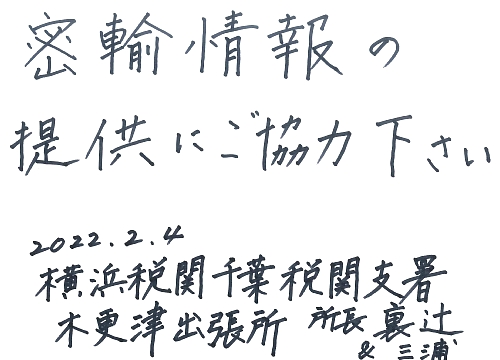 密輸情報の
提供にご協力下さい
2022.2.4
横浜税関千葉税関支署
木更津出張所 所長 裏辻
& 三浦